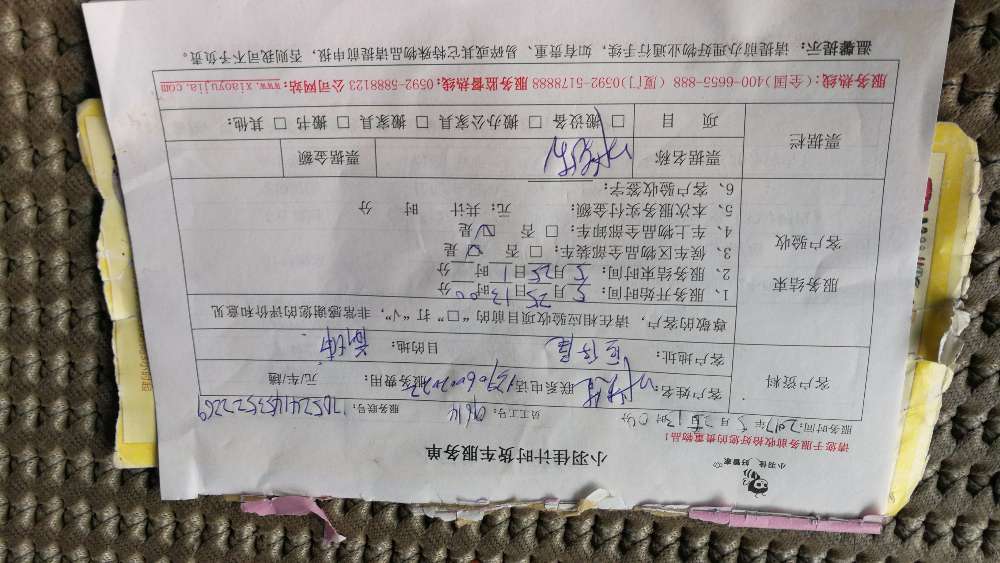 小羽佳 好管家
小羽佳计时货车服务单
请您于服务前收拾好您的贵重物品!
服务时间:2017年5月25日 时0分 员工工号:9614 服务联号:
客户资料
客户姓名: 联系电话: 服务费用: 元/车/趟
客户地址: 目的地:
尊敬的客户,请在相应验收项目前的“□”打“√”,非常感谢您的评价和意见
服务结束
客户验收
1、服务开始时间:5月25日13时00分
2、服务结束时间:5月25日1 时 分
3、候车区物品全部装车:□ 否 ☑ 是
4、车上物品全部卸车:□ 否 ☑ 是
5、本次服务实付金额: 元;共计 时 分
6、客户验收签字:
票据栏
票据名称 票据金额
项 目 □ 搬设备 □ 搬办公家具 □ 搬家具 □ 搬书 □ 其他:
服务热线:(全国)400-6655-888 (厦门)0592-5178888 服务监督热线:0592-5888123 公司网站:www.xiaoyujia.com
温馨提示: 请提前办理好物业通行手续,如有贵重、易碎或其它特殊物品请提前申报,否则我司不予负责。